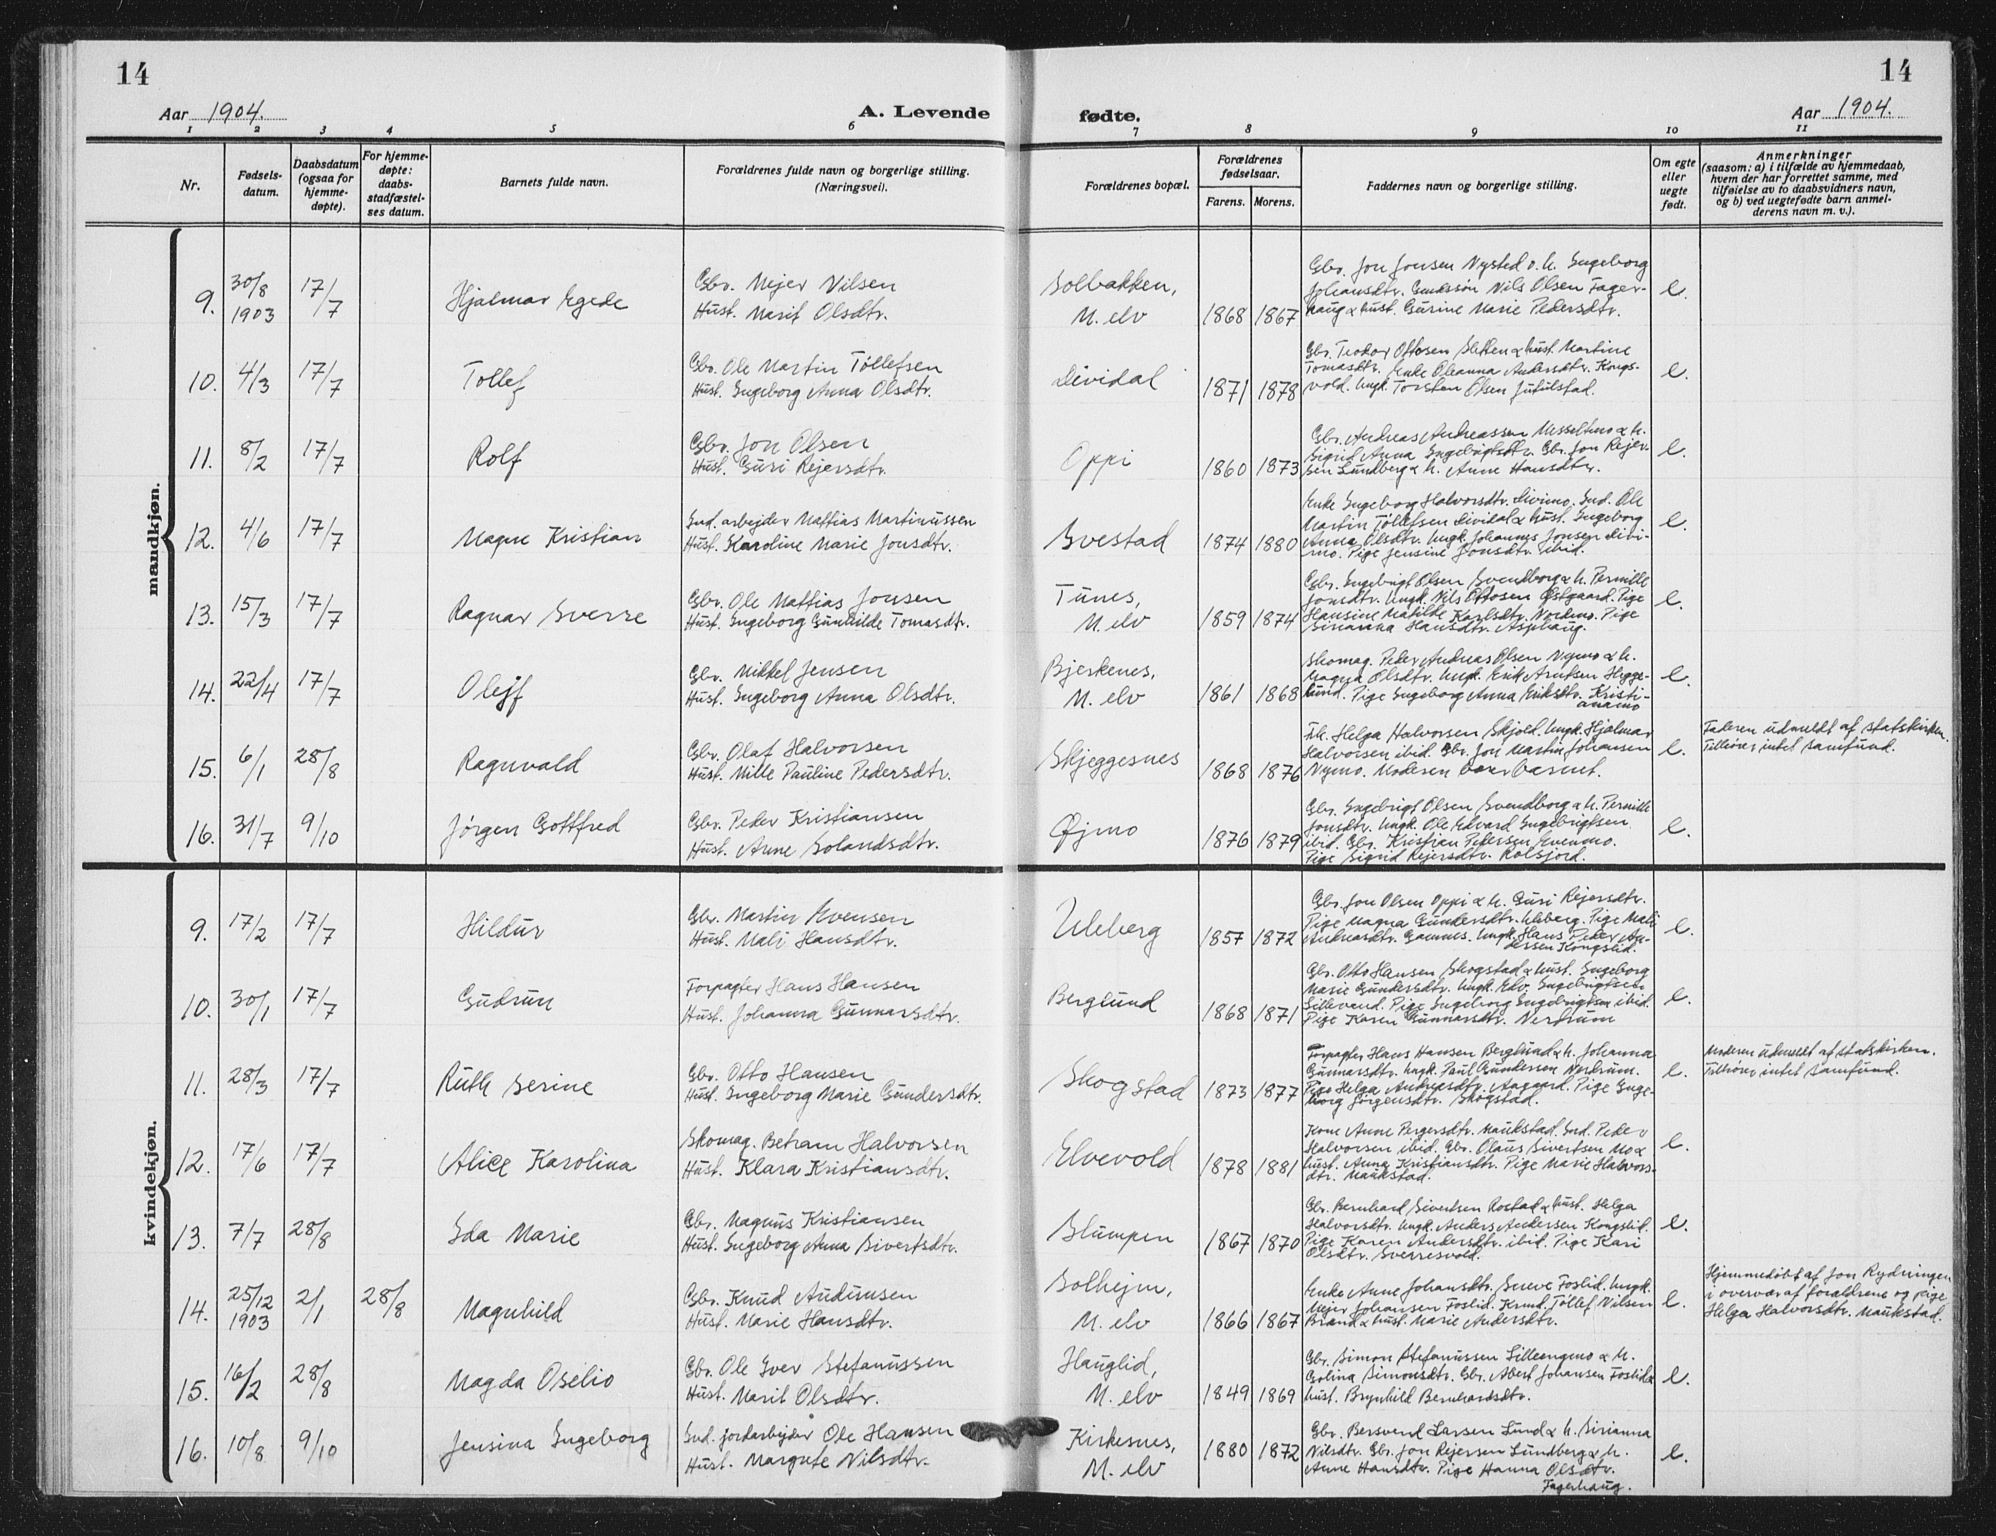 14
14
Aar 1904.
A. Levende
fødte.
Aar 1904.
1 2 3 4 5 6 7 8 9 10 11
Nr.
Fødsels-
datum.
Daabsdatum
(ogsaa for
hjemme-
døpte).
For hjemme-
døpte:
daabs-
stadfæstel-
ses datum.
Barnets fulde navn.
Forældrenes fulde navn og borgerlige stilling.
(Næringsvei).
Forældrenes bopæl.
Forældrenes
fødselsaar.
Farens. Morens.
Faddernes navn og borgerlige stilling.
Om egte
eller
uegte
født.
Anmerkninger
(saasom: a) i tilfælde av hjemmedaab,
hvem der har forrettet samme, med
tilføielse av to daabsvidners navn,
og b) ved uegtefødte barn anmel-
derens navn m. v.).
mandkjøn.
9. 30/8 1903 17/7 Hjalmar Egede
Gbr. Mejer Nilsen
Hust. Marit Olsdtr.
Solbakken,
M. elv
1868 1867
Gbr. Jon Jonsen Nysted o. h. Ingeborg
Johansdtr. Nils Olsen Fager-
haug & hust. Gurine Marie Pedersdtr.
e.
10. 4/3 17/7 Tollef
Gbr. Ole Martin Tøllefsen
Hust. Ingeborg Anna Olsdtr.
Dividal
1871 1878
Gbr. Teodor Ottosen & hust. Martine
Tomasdtr. Enke Oleanna Andersdtr. Kongs-
vold. Ungk. Torsten Olsen Jutulstad.
e.
11. 8/2 17/7 Rolf
Gbr. Jon Olsen
Hust. Guri Rejersdtr.
Oppi
1860 1873
Gbr. Andreas Andreassen Messeltmo & h.
Sigrid Anna Ingebrigtsdtr. Gbr. Jon Rejer-
sen Lundberg & h. Anne Hansdtr.
e.
12. 4/6 17/7 Magne Kristian
Ind. arbejder Mattias Martinussen
Hust. Karoline Marie Jonsdtr.
Svestad
1874 1880
Enke Ingeborg Halvorsdtr. Divimo. Ind. Ole
Martin Tøllefsen Dividal & hust. Ingeborg
Anna Olsdtr. Ungk. Johannes Jonsen Divi-
mo. Pige Jensine Jonsdtr. ibid.
e.
13. 15/3 17/7 Ragnar Sverre
Gbr. Ole Mattias Jonsen
Hust. Ingeborg Gunhilde Tomasdtr.
Tunes,
M. elv
1859 1874
Gbr. Ingebrigt Olsen Svendborg & h. Pernille
Jonsdtr. Ungk. Nils Ottosen Østgaard. Pige
Hansine Matilde Karlsdtr. Nordmo. Pige
Sirianna Hansdtr. Asphaug.
e.
14. 22/4 17/7 Olejf
Gbr. Mikkel Jensen
Hust. Ingeborg Anna Olsdtr.
Bjerkenes,
M. elv
1861 1868
Skomag. Peder Andreas Olsen Nymo & h.
Magna Olsdtr. Ungk. Erik Arntsen Hegge-
lund. Pige Ingeborg Anna Eriksdtr. Kristi-
anamo
e.
15. 6/1 28/8 Ragnvald
Gbr. Olaf Halvorsen
Hust. Mille Pauline Pedersdtr.
Skjeggesnes
1868 1876
Frk. Helga Halvorsen Skjold. Ungk. Hjalmar
Halvorsen ibid. Gbr. Jon Martin Johansen
Nymo. Moderen baar barnet.
e.
Faderen udmeldt af statskirken.
Tilhører intet samfund.
16. 31/7 9/10 Jørgen Gottfred
Gbr. Peder Kristiansen
Hust. Anne Solandsdtr.
Øjmo
1876 1879
Gbr. Ingebrigt Olsen Svendborg & h. Pernille
Jonsdtr. Ungk. Ole Edvard Ingebrigtsen
ibid. Gbr. Kristian Petersen Evenmo.
Pige Sigrid Rejersdtr. Rolsjord.
e.
kvindekjøn.
9. 17/2 17/7 Hildur
Gbr. Martin Evensen
Hust. Mali Hansdtr.
Uleberg
1857 1872
Gbr. Jon Olsen Oppi & h. Guri Rejersdtr.
Pige Magna Gundersdtr. Uleberg. Pige Mali
Andreasdtr. Gamnes. Ungk. Hans Peder An-
dersen Kongslid.
e.
10. 30/1 17/7 Gudrun
Forpagter Hans Hansen
Hust. Johanna Gunnarsdtr.
Berglund
1868 1871
Gbr. Otto Hansen Skogstad & hust. Ingeborg
Marie Gundersdtr. Ungk. Edv. Ingebrigtsen
Lillevand. Pige Ingeborg Ingebrigtsen ibid.
Pige Karen Gunnarsdtr. Nerdrum
e.
11. 28/3 17/7 Ruth Serine
Gbr. Otto Hansen
Hust. Ingeborg Marie Gundersdtr.
Skogstad
1873 1877
Forpagter Hans Hansen Berglund & h. Johanna
Gunnarsdtr. Ungk. Paul Gundersen Nordrum.
Pige Helga Andreasdtr. Aagaard. Pige Inge-
borg Jørgensdtr. Skogstad.
e.
Moderen udmeldt af statskirken.
Tilhører intet samfund.
12. 17/6 17/7 Alice Karolina
Skomag. Betram Halvorsen
Hust. Klara Kristiansdtr.
Elvevold
1878 1881
Kone Anne Pergersdtr. Maukstad. Ind. Peder
Halvorsen ibid. Gbr. Olaus Sivertsen Mo &
hust. Anna Kristiansdtr. Pige Marie Halvors-
dtr. Maukstad.
e.
13. 7/7 28/8 Ida Marie
Gbr. Magnus Kristiansen
Hust. Ingeborg Anna Sivertsdtr.
Slumpen
1867 1870
Gbr. Bernhard Sivertsen Rostad & hust. Helga
Halvorsdtr. Ungk. Anders Andersen Kongslid.
Pige Karen Andersdtr. ibid. Pige Kari
Olsdtr. Sverresvold.
e.
14. 25/12 1903 2/1 28/8 Magnhild
Gbr. Knud Audunsen
Hust. Marie Hansdtr.
Solhejm,
M. elv
1866 1867
Enke Anne Johansdtr. Sneve Foslid. Ungk.
Mejer Johansen Foslid. Tøllef Nilsen
Brand & hust. Marie Andersdtr.
e.
Hjemmedøbt af Jon Rydningen
i overvær af forældrene og pige
Helga Halvorsdtr. Maukstad.
15. 16/2 28/8 Magda Oselio
Gbr. Ole Iver Stefanussen
Hust. Marit Olsdtr.
Hauglid,
M. elv
1849 1869
Gbr. Simon Stefanussen Lilleengmo & h.
Golina Simonsdtr. Gbr. Abert Johansen Foslid &
hust. Brynhild Bernhardsdtr.
e.
16. 10/8 9/10 Jensina Ingeborg
Ind. jordarbejder Ole Hansen
Hust. Margrete Nilsdtr.
Kirkesnes,
M. elv
1880 1872
Gbr. Bersvend Larsen Lund & h. Sirianna
Nilsdtr. Gbr. Jon Rejersen Lundberg & h.
Anne Hansdtr. Pige Hanna Olsdtr.
Fagerhaug.
e.